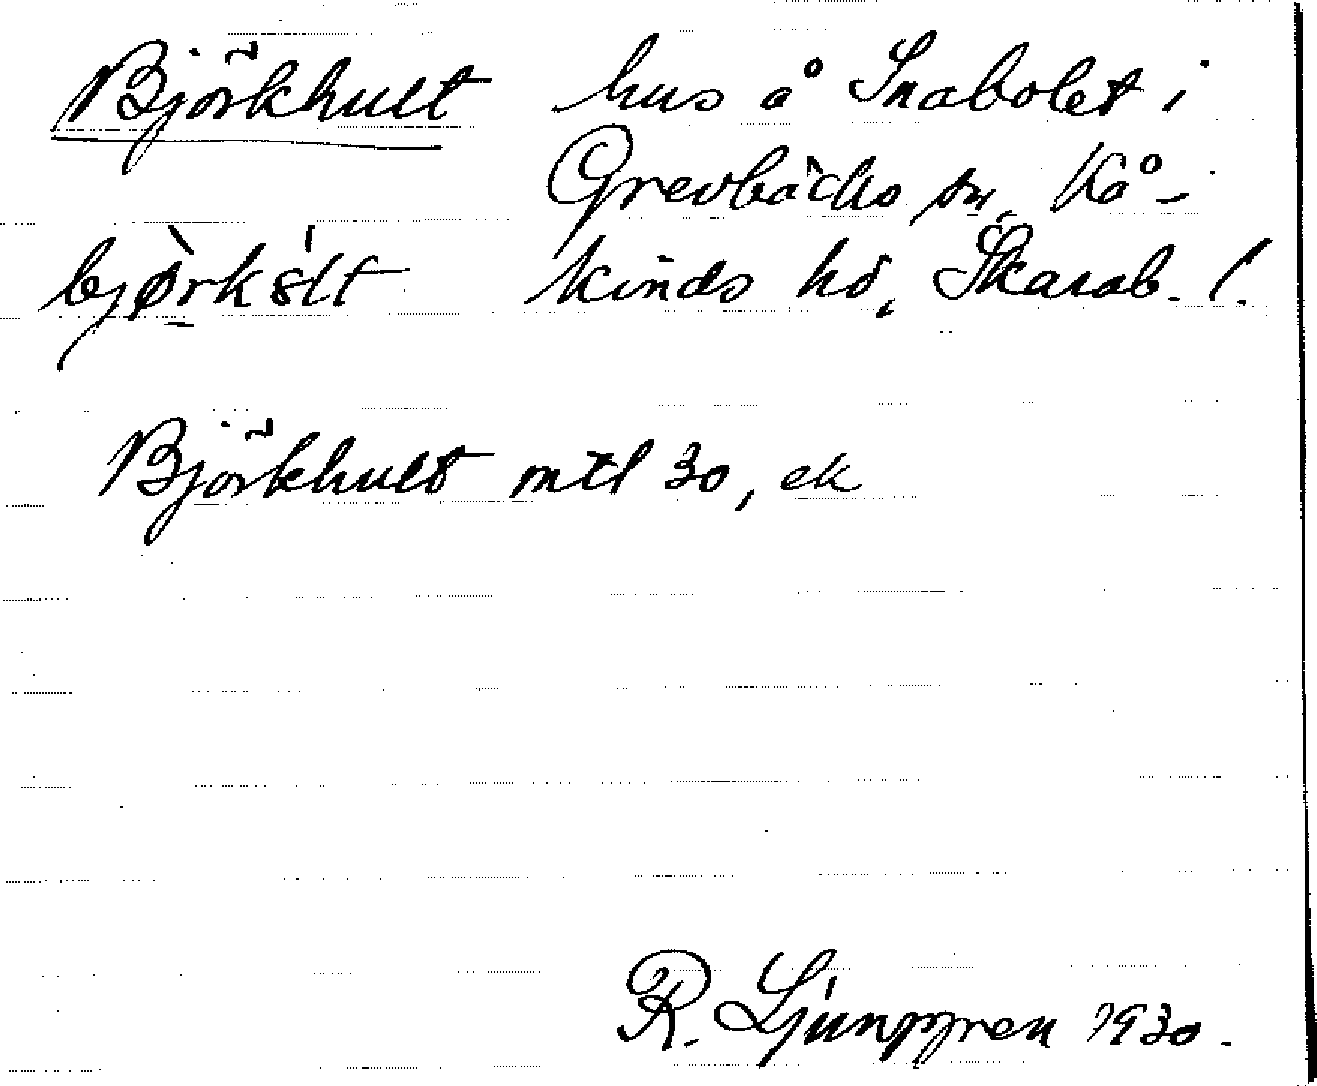 Björkhult hus å Snabolet i
Grevbäcks sn, Kå-
bjørkslt kinds hd, Skarab. l.
Björkhult mtl 30, ek
R. Ljunggren 1930.